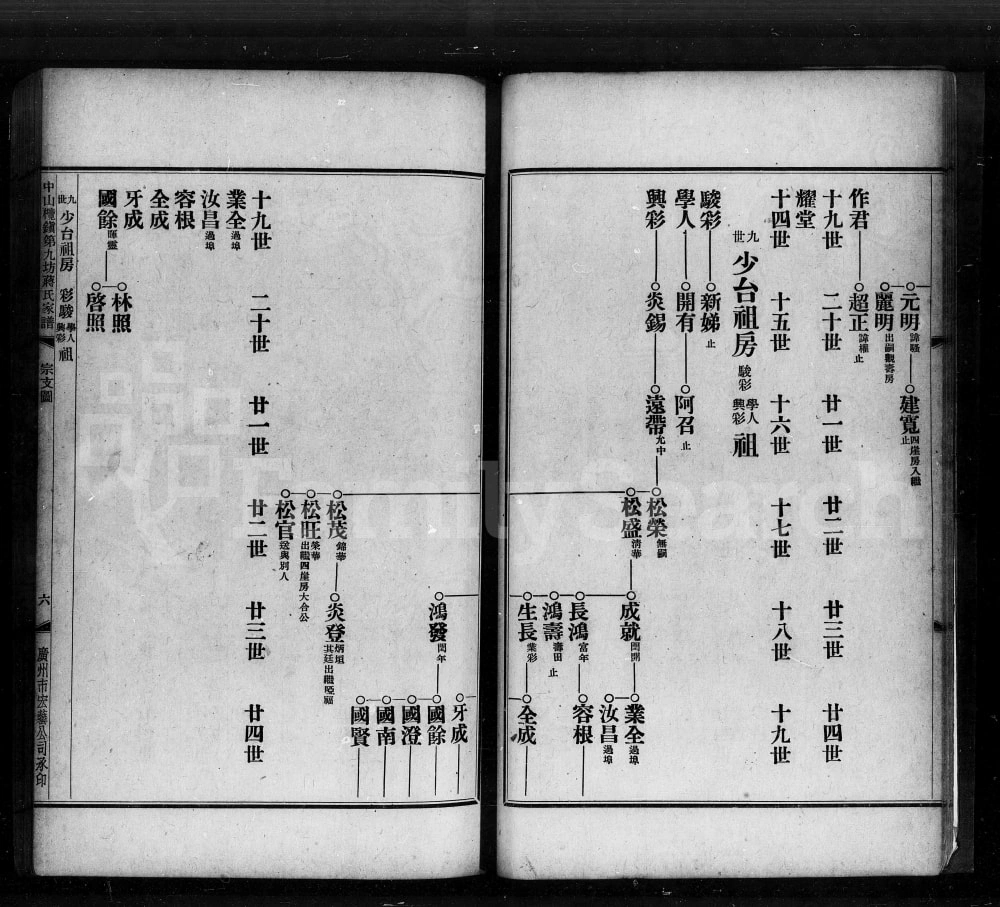 元明 諱騷
建寬 四崖房入繼 止
麗明 出嗣觀壽房
作君
超正 諱權 止
十九世 二十世 廿一世 廿二世 廿三世 廿四世
耀堂
十四世 十五世 十六世 十七世 十八世 十九世
九世 少台祖房 駿彩 學人 興彩 祖
駿彩 新娣 止
學人 開有 阿召 止
興彩 炎錫 遠帶 允中
松榮 無嗣
松盛 清華
成就 閏開
業全 過埠
汝昌 過埠
長鴻 富年
容根
鴻壽 壽田 止
生長 業彩
全成
牙成
鴻發 閏年
國餘
國澄
國南
國賢
松茂 錦華
炎登 炳垣 其廷出繼啞福
松旺 榮華 出繼四崖房大合公
松官 送與別人
十九世 二十世 廿一世 廿二世 廿三世 廿四世
業全 過埠
汝昌 過埠
容根
全成
牙成
國餘 暉靈
林照
啓照
九世 少台祖房 彩駿 學人 興彩 祖
中山欖鎮第九坊蔣氏家譜 宗支圖 六 廣州市宏藝公司承印
FamilySearch